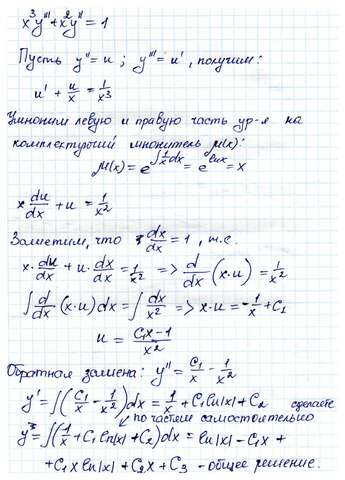 x³y''' + x²y'' = 1
Пусть y'' = u ; y''' = u' , получим:
u' + u/x = 1/x³
Умножим левую и правую часть ур-я на
комплектующий множитель μ(x):
μ(x) = e^∫(1/x)dx = e^lnx = x
x du/dx + u = 1/x²
Заметим, что dx/dx = 1 , т.е.
x · du/dx + u · dx/dx = 1/x² => d/dx (x·u) = 1/x²
∫ d/dx (x·u) dx = ∫ dx/x² => x·u = -1/x + C₁
u = (C₁x-1)/x²
Обратная замена: y'' = C₁/x - 1/x²
y' = ∫(C₁/x - 1/x²)dx = 1/x + C₁ln|x| + C₂ сделаете
по частям самостоятельно
y = ∫(1/x + C₁ ln|x| + C₂)dx = ln|x| - C₁x +
+ C₁x ln|x| + C₂x + C₃ - общее решение.